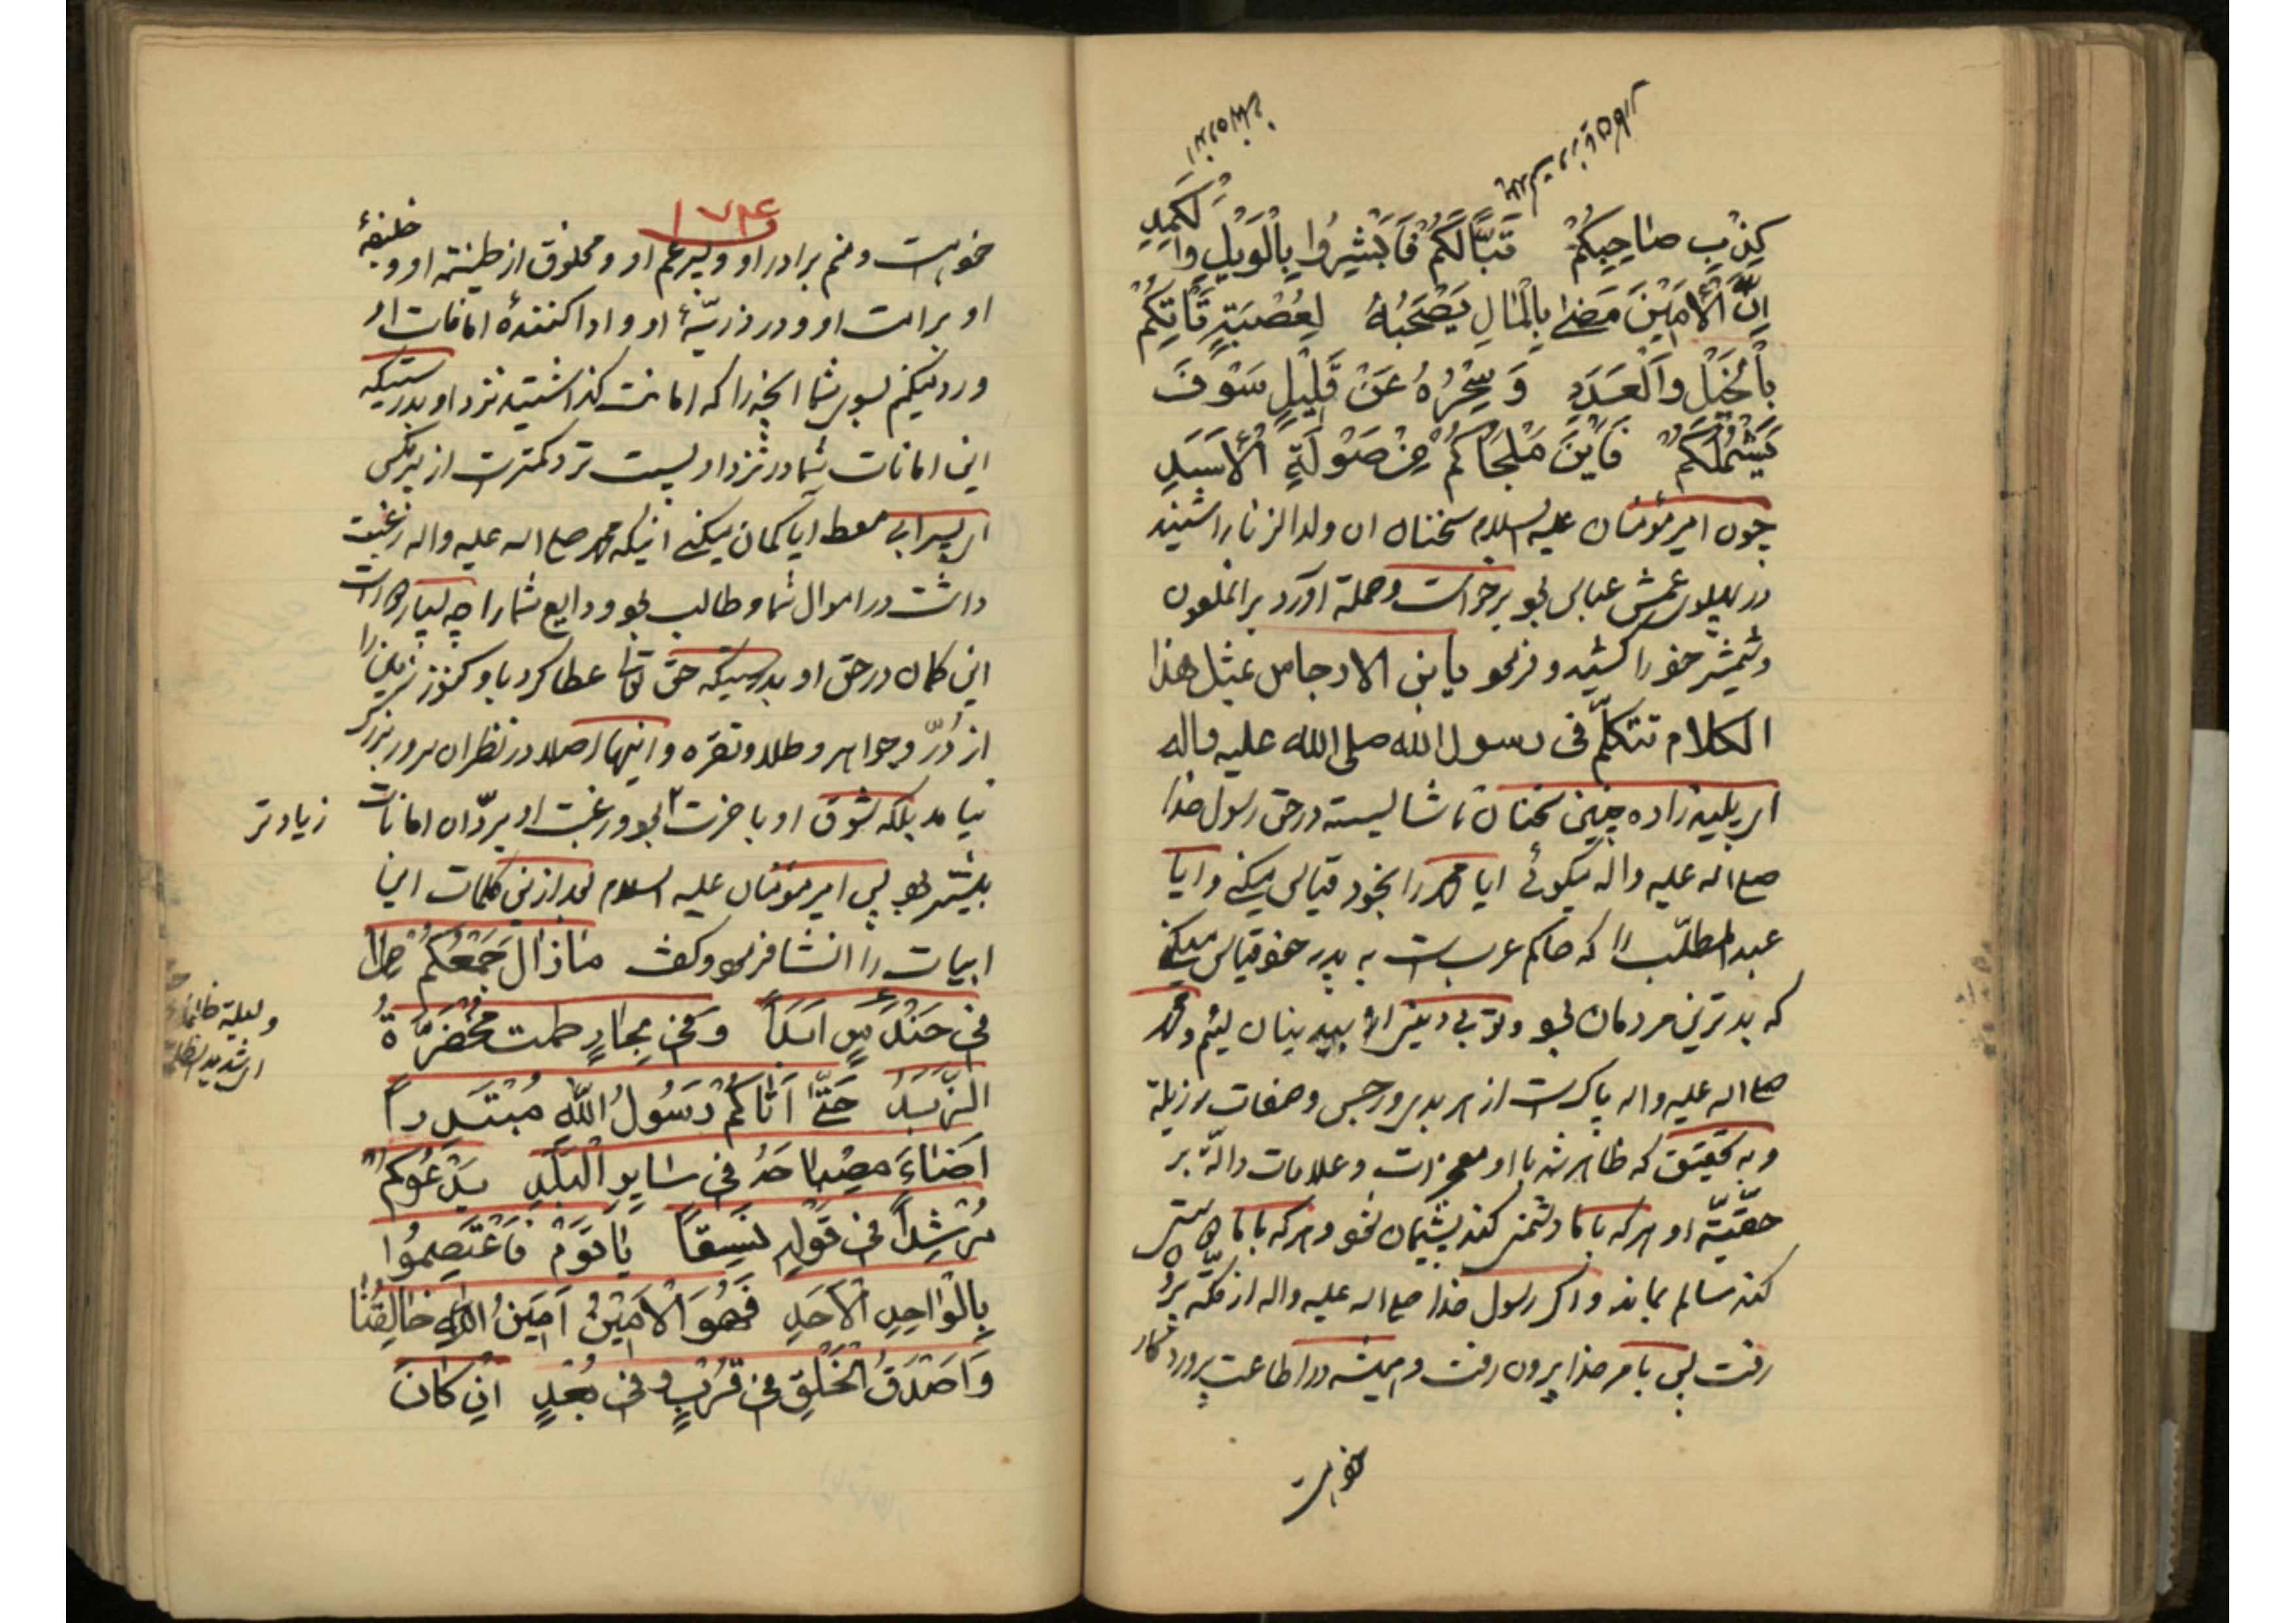 كِذْبِ صٰاحِبِكُمْ تَبّاً لَكُمْ فَاَبْشِرُوا بِالْوَيْلِ وَالْكَمَدِ
اِنَّ الْاَمِيْنَ مَضٰى بِالْمٰالِ يَصْحَبُهُ لِعُصْبَةٍ تَاْتِكُمْ
بِالْخَيْلِ وَالْعَدَدِ وَ سِحْرُهُ عَنْ قَلِيْلٍ سَوْفَ
يَشْمُلُكُمْ فَاَيْنَ مَلْجَاكُمْ مِنْ صَوْلَةِ الْاَسَدِ
چون امیر مؤمنان علیه السلام سخنان ان ولد الزنا را شنید
در پهلوی عمش عباس بود برخواست و حمله آورد بر انملعون
و شمشیر خود را کشید و فرمود یابن الاوجامل بمثل هذا
الکلام تتکلّم فی رسول الله صلی الله علیه واله
ای پلید زاده چنین سخنان ناشایسته در حق رسول خدا
صلی اله علیه واله میگوئی ایا محمد را بخود قیاس میکنی و ایا
عبد المطلّب را که حاکم عرب است به پدر خود قیاس میکنی
که بدترین مردمان بود و تو بی دینتر از بیدینان لئیم و محمد
صلی اله علیه واله پاک است از هر بدی و رجس و صفات رزیله
و به تحقیق که ظاهر شد با او معجزات و علامات دالّه بر
حقّیّة او هر که با ما دشمنی کند پشیمان شود و هر که با ما
کند سالم بماند و اگر رسول خدا صلی اله علیه واله از مکّه بیرون
رفت پس بامر خدا بیرون رفت و همیشه در اطاعت پروردگار
خود است
۱۷۴
خود است و منم برادر او و پسر عم او و مخلوق از طینت او و خلیفهٔ
او بر امت او و در ذریّهٔ او و ادا کنندهٔ امانات او
و رد میکنم بسوی شما انچه را که امانت گذاشتید نزد او بدرستیکه
این امانات شما در نزد او پست تر و کمتر است از
ای پسر ابی معط ایا گمان میکنی اینکه محمد صلی اله علیه واله رغبت
داشت در اموال شما و طالب بود ودایع شما را چه بسیار
این گمان در حق او بدرستیکه حق تعالی عطا کرد باو کنوز زمین را
از دُرّ و جواهر و طلا و نقره و اینها اصلا در نظر ان سرور بزرگ
نیامد بلکه شوق او با خرت بود و رغبت او بردّ ان امانات زیادتر
بیشتر بود پس امیر مؤمنان علیه السلام بعد از این کلمات این
ابیات را انشا فرمود و گفت مٰازٰالَ جَمْعُكُمْ
فی حَنْدَسٍ اَبَداً وَ فی بِحارٍ طمت مُخْضَرَّةُ
الزَّبَدُ حَتّٰى اَتٰاكُمْ رَسُولُ اللّٰهِ مُبْتَدِراً
اَضٰاءَ مِصْبٰاحهُ فی سٰایِرِ الْبَلَدِ یَدْعُوكُمْ
مُرْشِداً فی قَوْلِهِ نَسِیقاً یٰا قَوْمُ فَاعْتَصِمُوا
بِالْوٰاحِدِ الْاَحَدِ فَهُوَ الْاَمِیْنُ اَمِیْنُ اللّٰهِ خٰالِقُنٰا
وَ اَصْدَقُ الْخَلْقِ فی قُرْبٍ وَ فی بُعْدٍ اِنْ كانَ